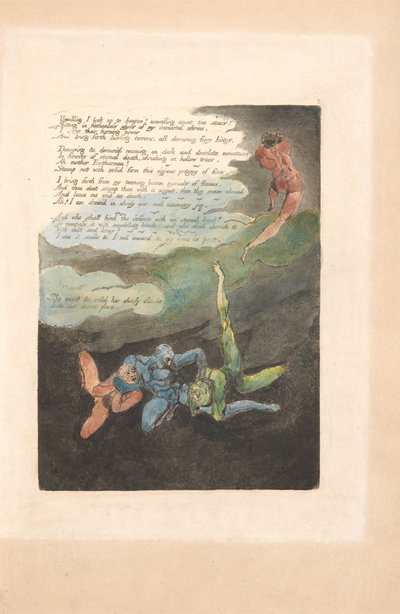 Unwilling I look up to heaven! unwilling count the stars!
Sitting in fathomless abyss of my immortal shrine.
I sieze their burning power
And bring forth howling terrors, all devouring fiery kings.
Devouring & devoured roaming on dark and desolate mountains
In forests of eternal death, shrieking in hollow trees.
Ah mother Enitharmon!
Stamp not with solid form this vig'rous progeny of fires.
I bring forth from my teeming bosom myriads of flames.
And thou dost stamp them with a signet, then they roam abroad
And leave me void as death:
Ah! I am drown'd in shady woe, and visionary joy.
And who shall bind the infinite with an eternal band?
To compass it with swaddling bands? and who shall cherish it
With milk and honey?
I see it smile & I roll inward & my voice is past.
She ceast & rolld her shady clouds
Into the secret place.